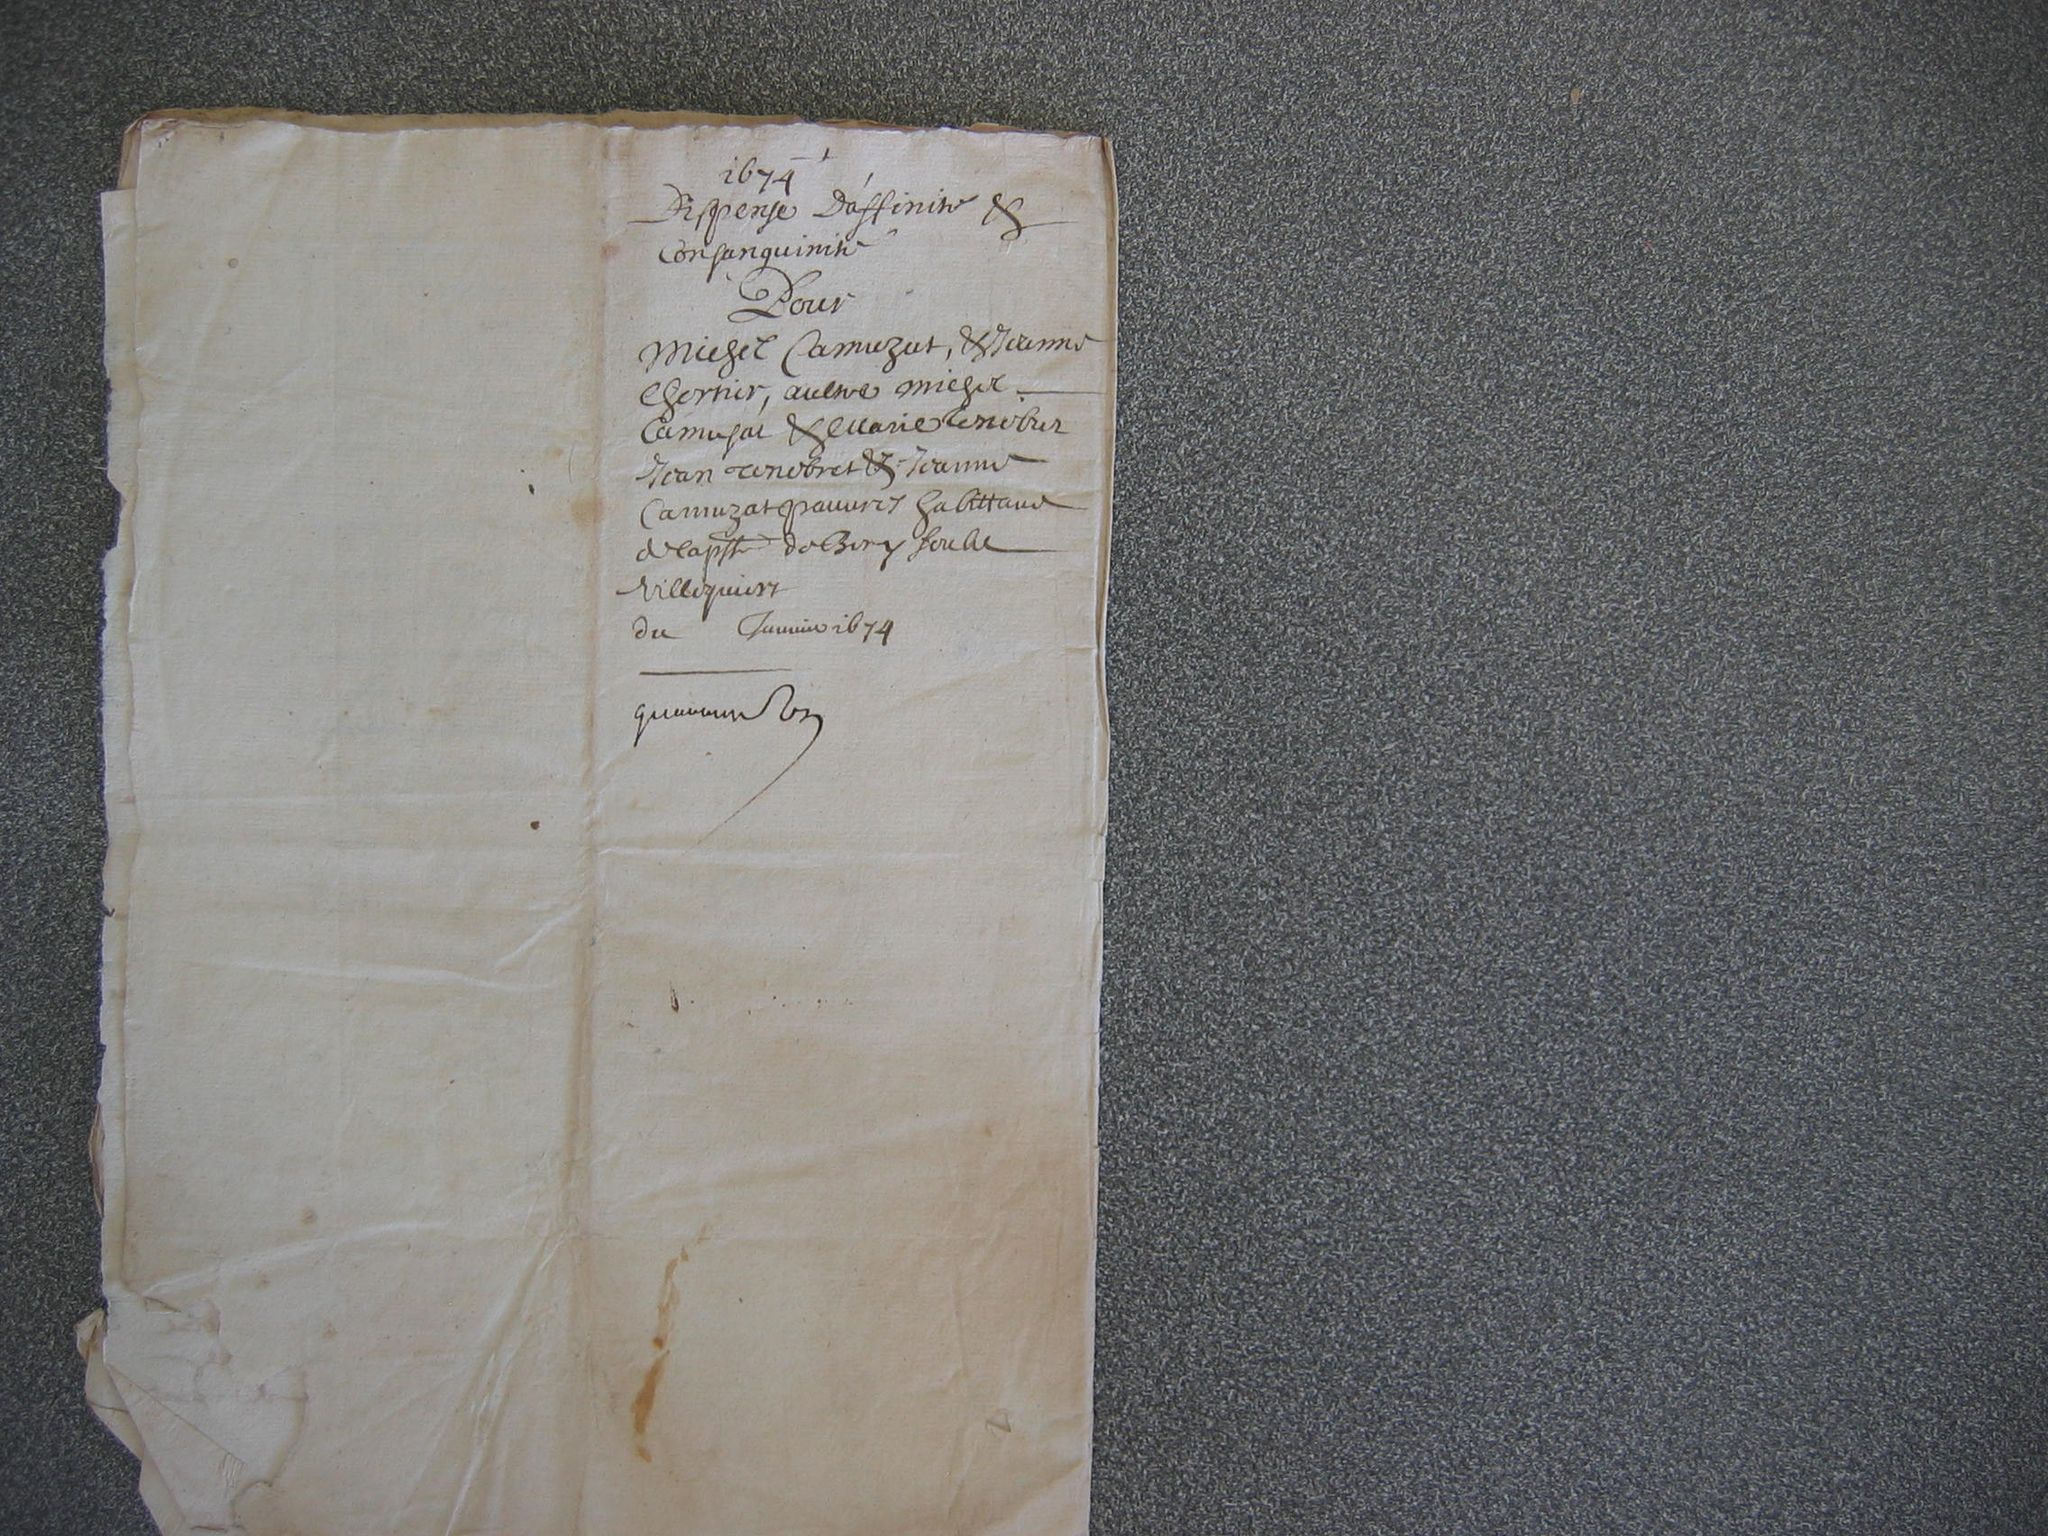 1674
Dispense D'affinite &
Consanguinite
Pour
Michel Camuzat, & Jeanne
Chertier, aultre Michel
Camusat & Marie Tenebret
Jean Tenebret & Jeanne
Camuzat pauures habittans
de la psse de Bery soubz
Villequiers
du Januier 1674